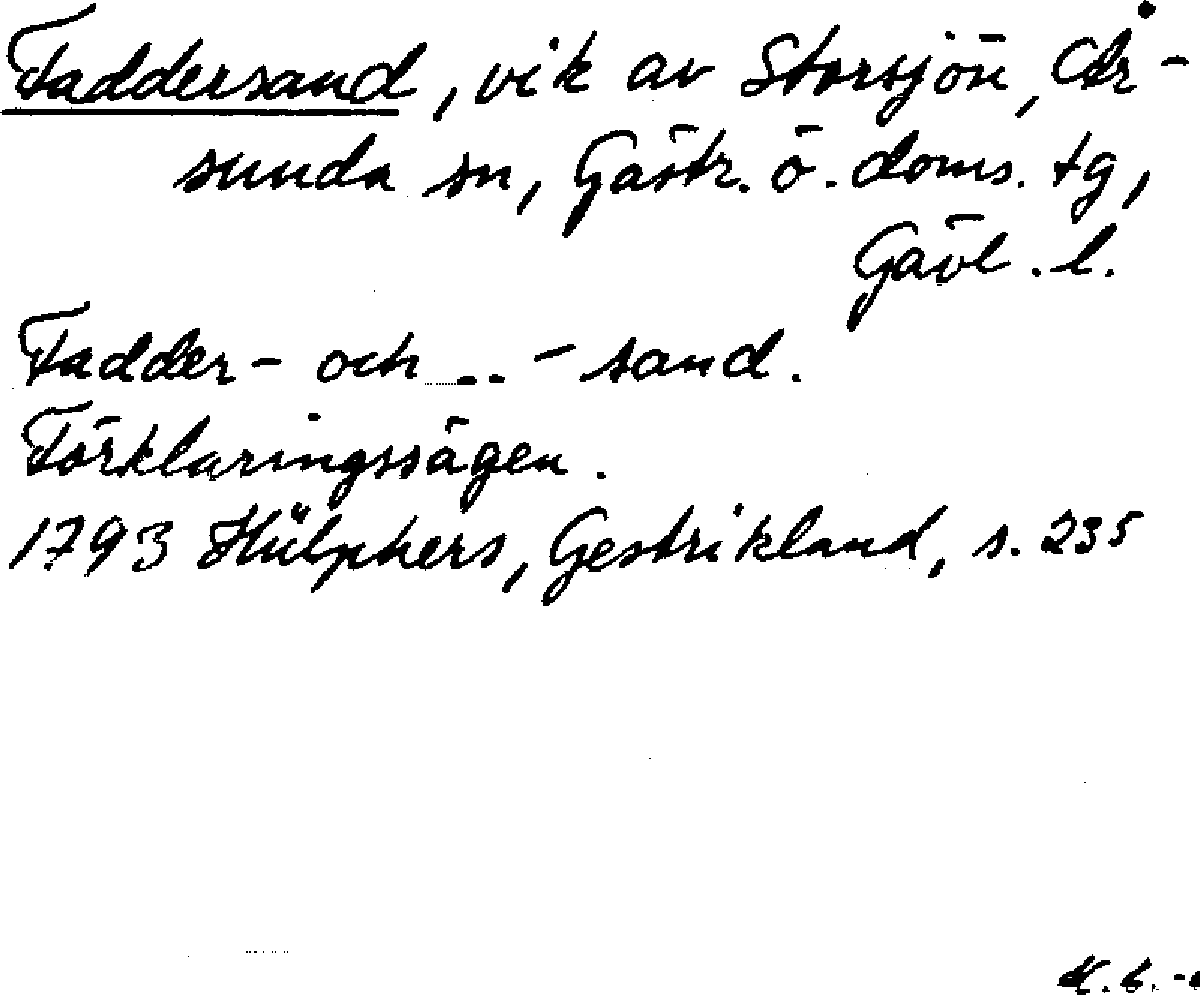 Faddersand, vik av Storsjön, År-
sunda sn, Gästr. ö. doms. tg,
Gävl. l.
Fadder- och -- -sand.
Förklaringssägen.
1793 Hülphers, Gestrikland, s. 235